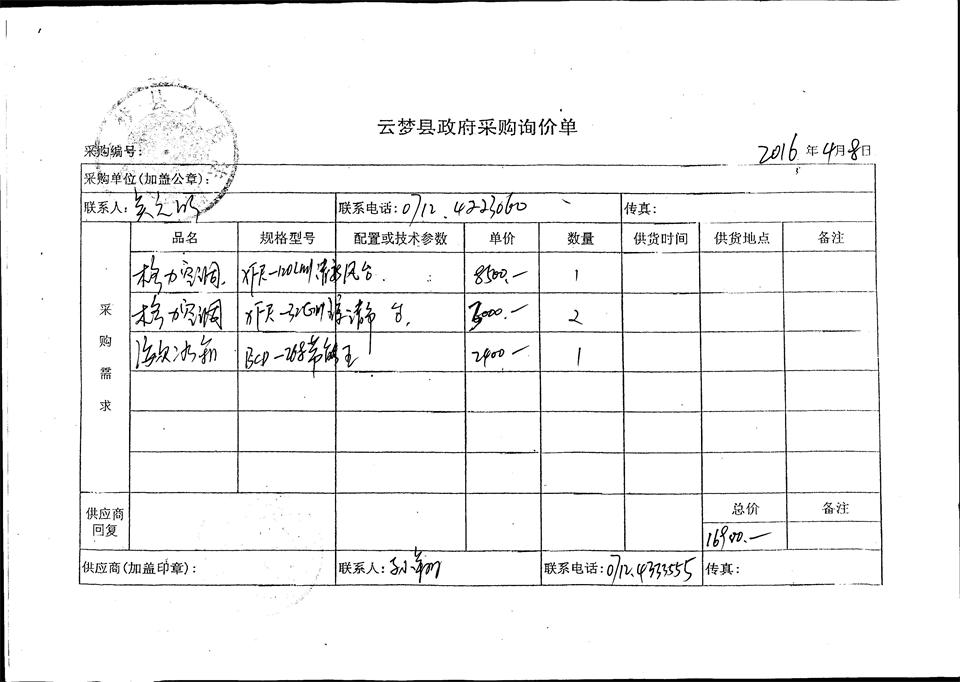 云梦县政府采购询价单
采购编号: 2016 年 4 月 8 日
采购单位(加盖公章):
联系人: 联系电话: 0712.4223060 传真:
采购需求
品名 规格型号 配置或技术参数 单价 数量 供货时间 供货地点 备注
格力空调 8500.— 1
格力空调 3000.— 2
BCD-268 2400— 1
供应商回复 总价 备注
16900.—
供应商(加盖印章): 联系人: 联系电话: 0712.4333555 传真: